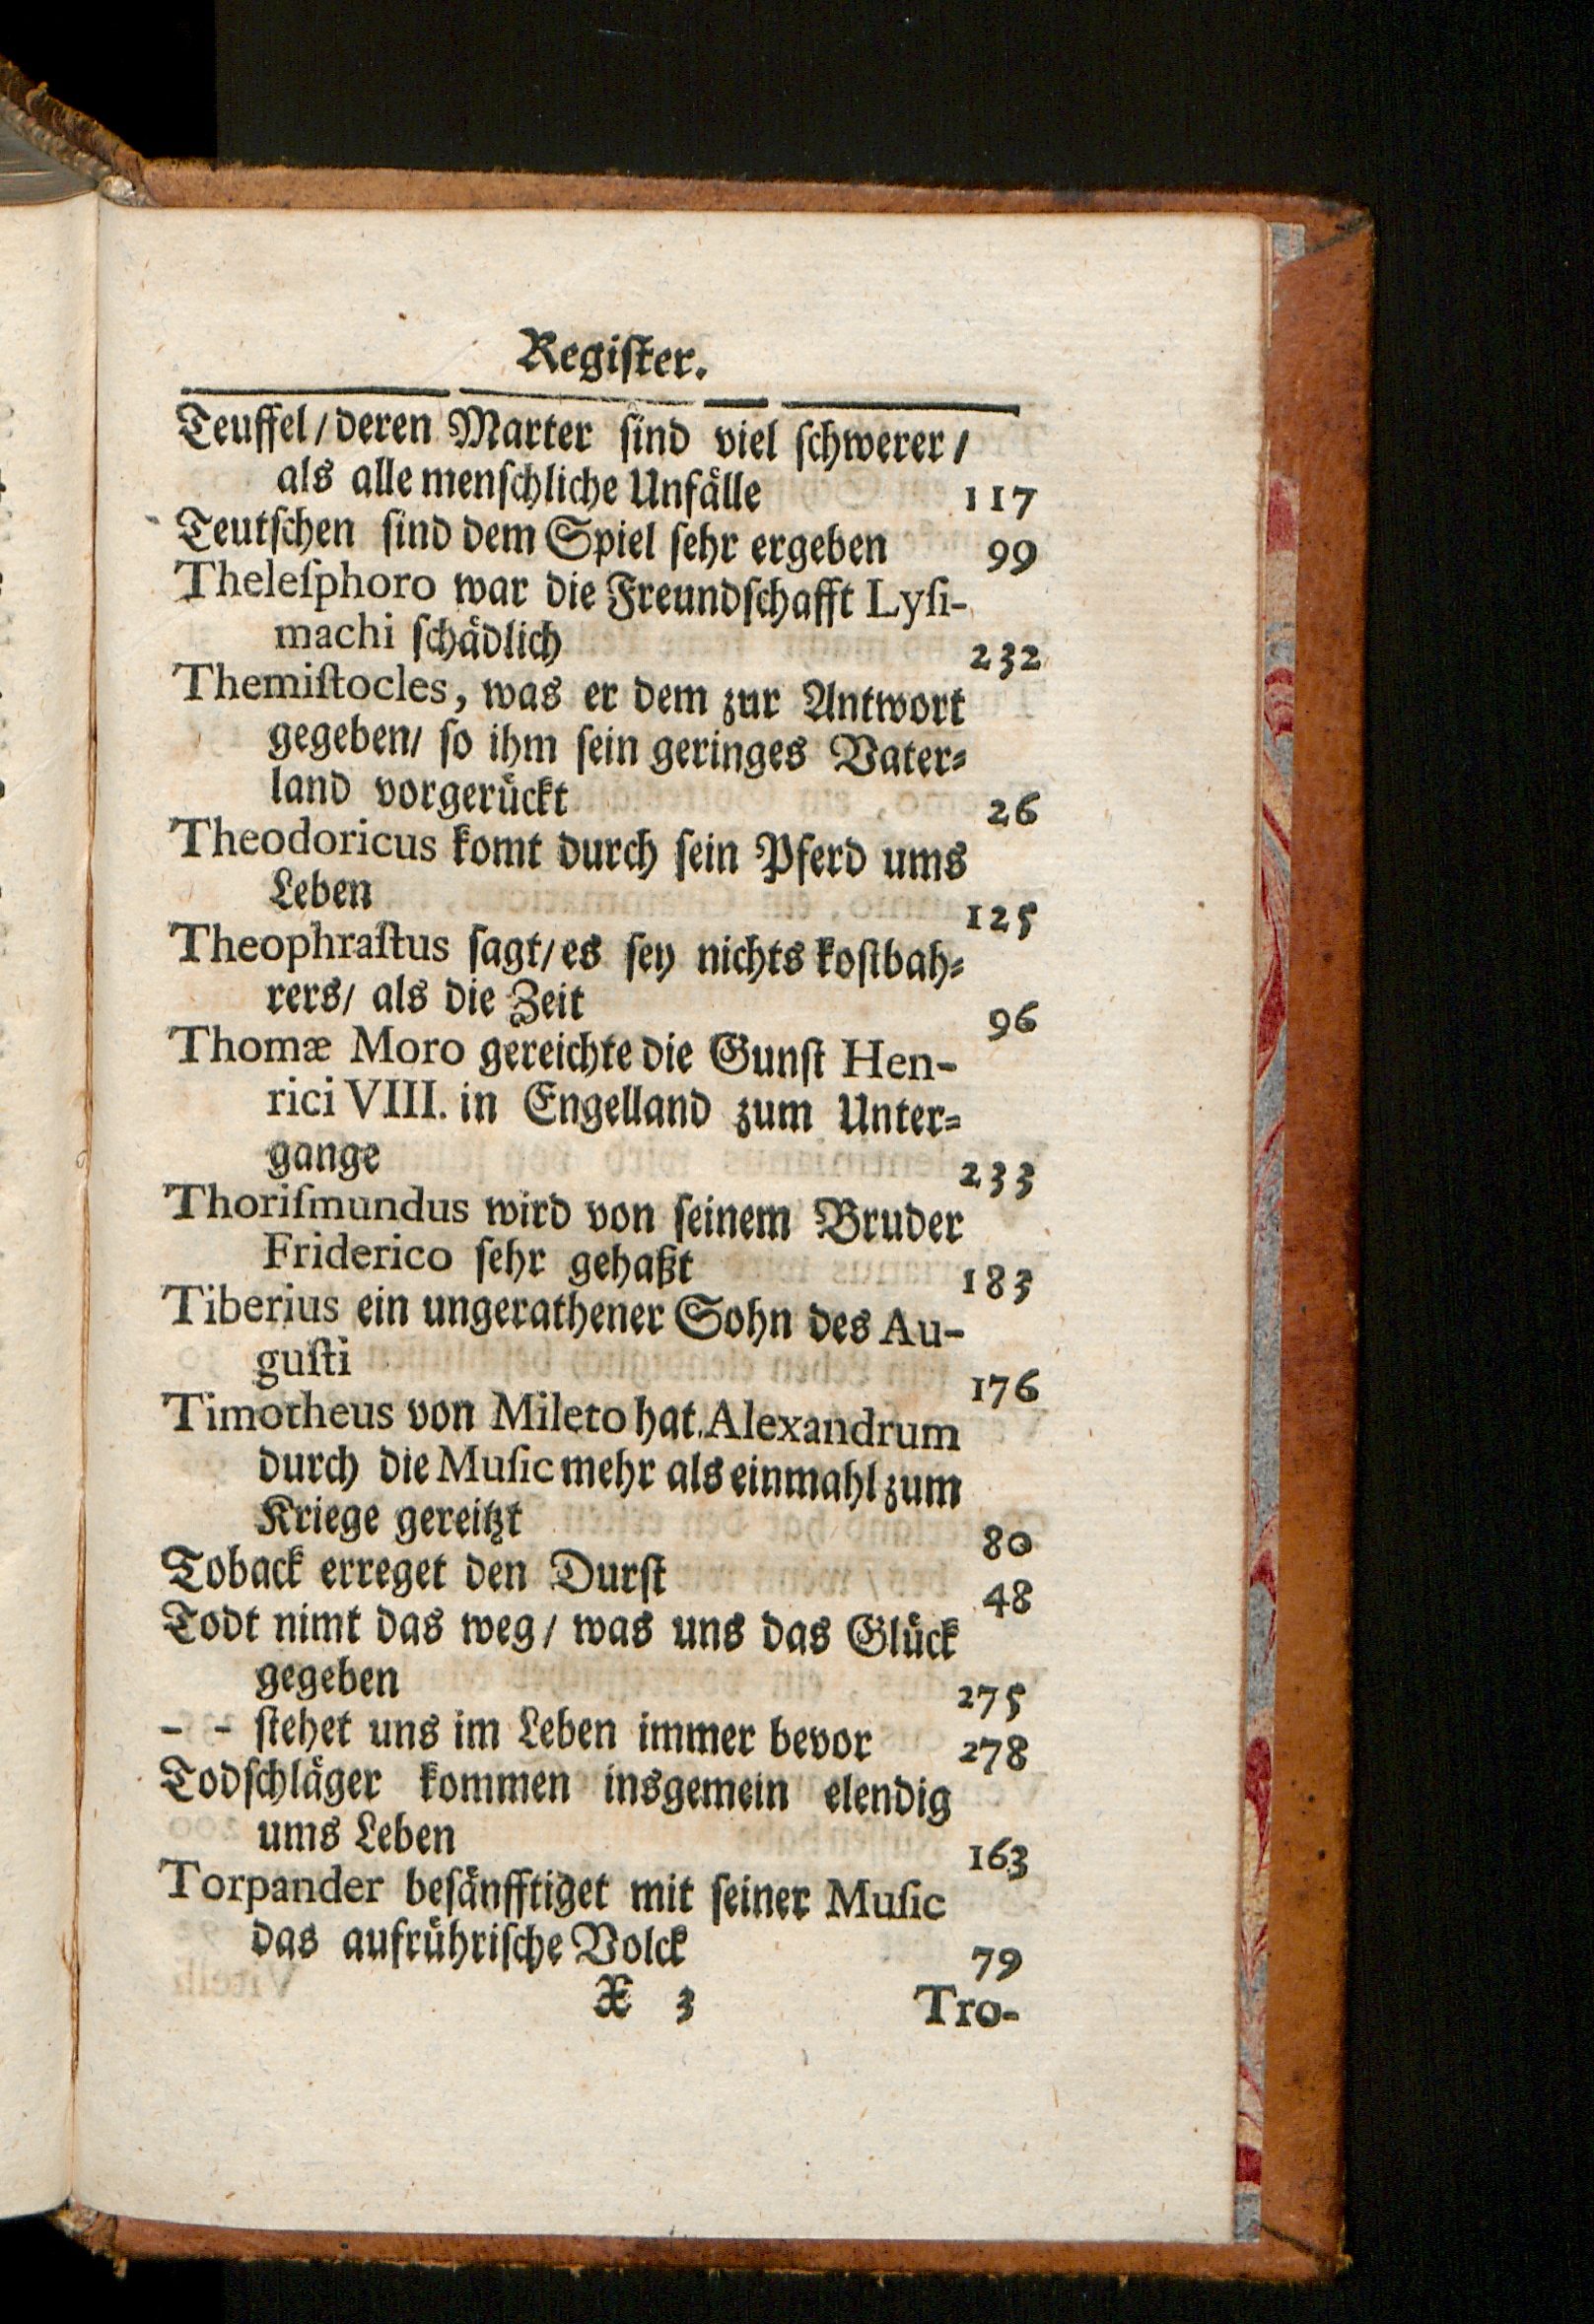 Regiſter.
Teuffel/ deren Marter ſind viel ſchwerer/
als alle menſchliche Unfälle 117
Teutſchen ſind dem Spiel ſehr ergeben 99
Theleſphoro war die Freundſchafft Lyſi-
machi ſchädlich 232
Themiſtocles, was er dem zur Antwort
gegeben/ ſo ihm ſein geringes Vater⸗
land vorgerückt 26
Theodoricus komt durch ſein Pferd ums
Leben 125
Theophraſtus ſagt/ es ſey nichts koſtbah⸗
rers/ als die Zeit 96
Thomæ Moro gereichte die Gunſt Hen-
rici VIII. in Engelland zum Unter⸗
gange 233
Thoriſmundus wird von ſeinem Bruder
Friderico ſehr gehaßt 183
Tiberius ein ungerathener Sohn des Au-
guſti 176
Timotheus von Mileto hat Alexandrum
durch die Muſic mehr als einmahl zum
Kriege gereitzt 80
Toback erreget den Durſt 48
Todt nimt das weg/ was uns das Glück
gegeben 275
- - ſtehet uns im Leben immer bevor 278
Todſchläger kommen insgemein elendig
ums Leben 163
Torpander beſänfftiget mit ſeiner Muſic
das aufrühriſche Volck 79
X 3 Tro-